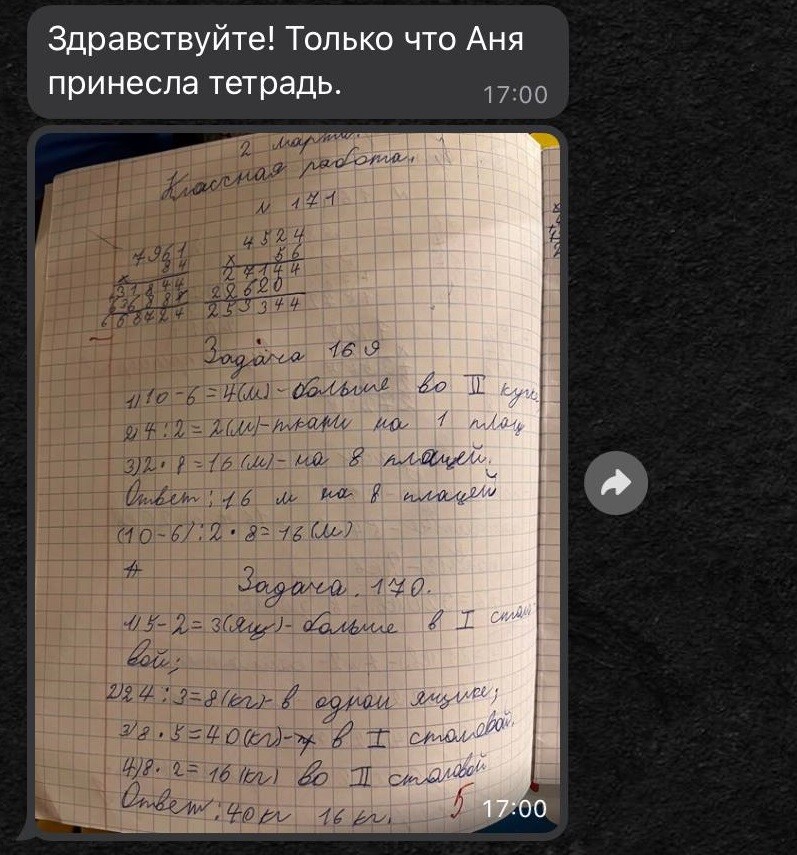 Здравствуйте! Только что Аня
принесла тетрадь.
17:00
2 марта.
Классная работа.
№ 171
7961
х 84
31844
63688
668724
4524
х 56
27144
22620
253344
Задача 169
1) 10-6=4(м)-больше во II кус.
2) 4:2=2(м)-ткани на 1 плащ
3) 2·8=16(м)-на 8 плащей.
Ответ: 16 м на 8 плащей
(10-6):2·8=16(м)
Задача. 170.
1) 5-2=3(ящ)-больше в I столо-
вой;
2) 24:3=8(кг)-в одном ящике;
3) 8·5=40(кг)- в I столовой.
4) 8·2=16(кг) во II столовой
Ответ: 40 кг 16 кг.
5
17:00